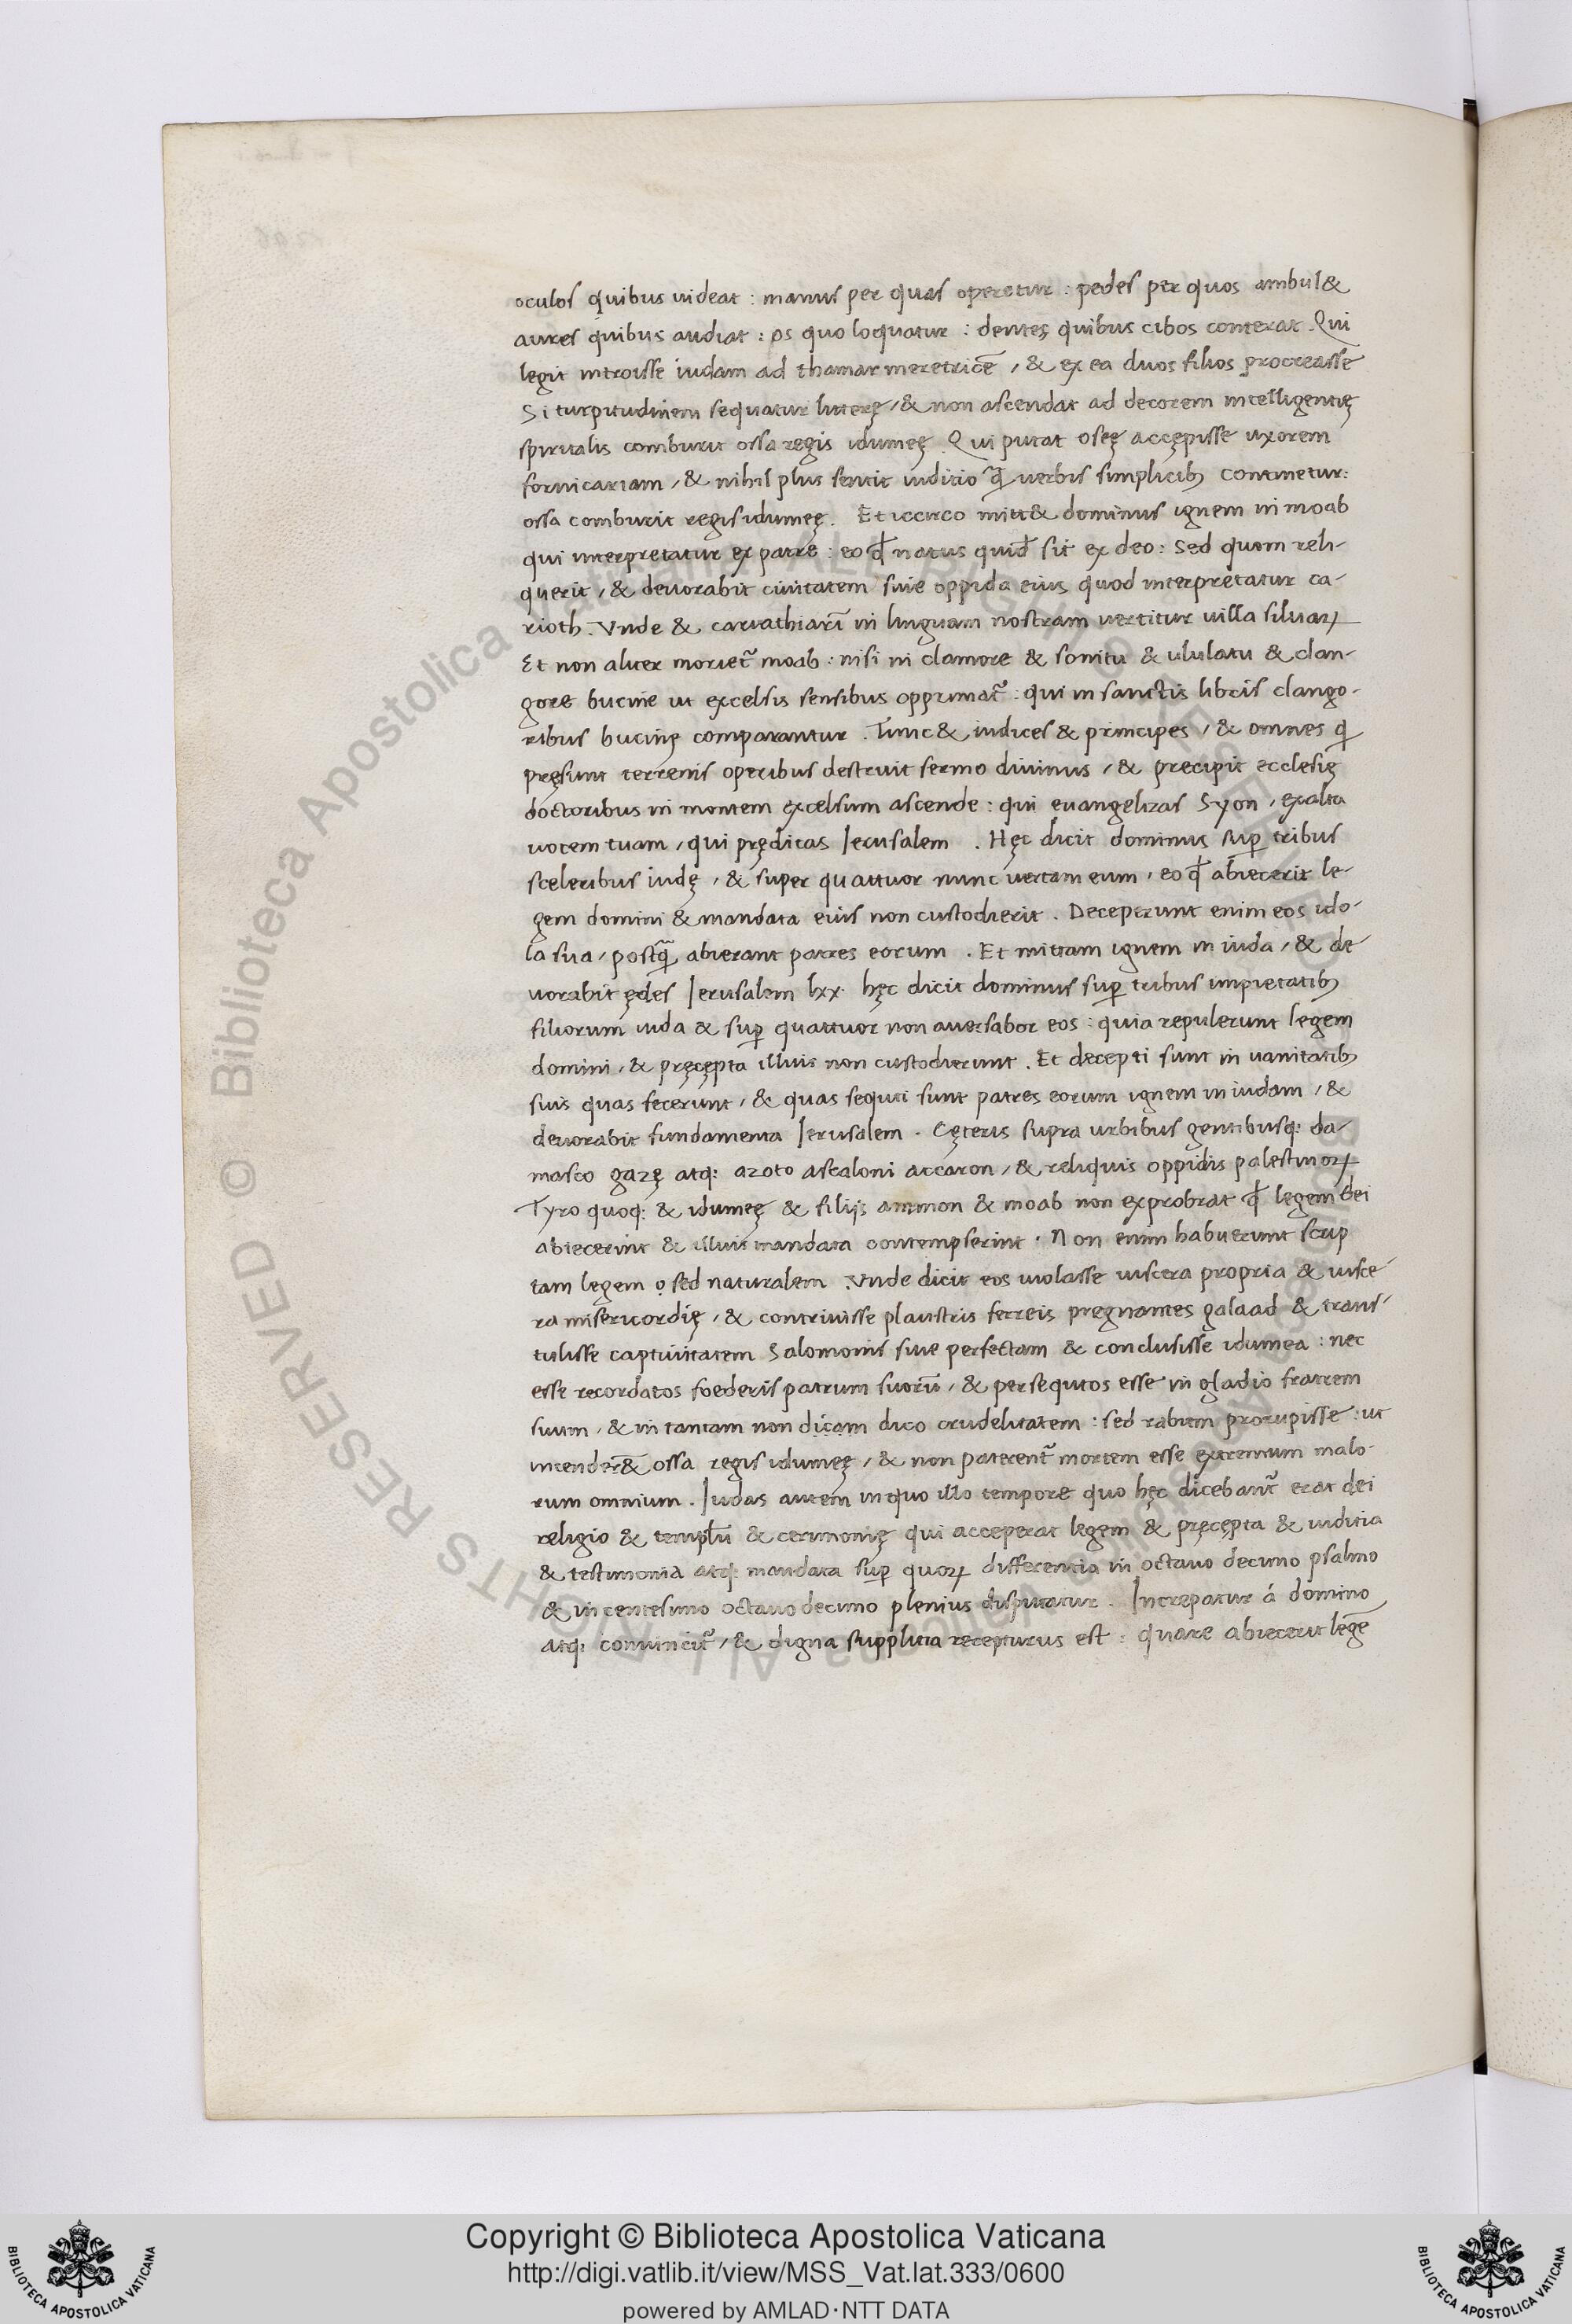 oculos quibus uideat : manus per quas operetur : pedes per quos ambul&
aures quibus audiat : os quo loquatur : dentes quibus cibos conterat . Qui
legit introisse iudam ad thamar meretricē , & ex ea duos filios procreasse
Si turpitudinem sequatur litterę , & non ascendat ad decorem intelligentię
spiritalis comburit ossa regis idumeę . Qui putat oseę accępisse uxorem
fornicariam , & nihil plus sentit iuditio q̄ uerbis simplicibꝫ continetur :
ossa comburit regis idumeę . Et iccirco mitt& dominus ignem in moab
qui interpretatur ex patre : eo ꝙ natus quid̄ sit ex deo : Sed quom reli-
querit , & deuorabit ciuitatem siue oppida eius quod interpretatur ca-
rioth . Vnde & cariathiarī in linguam nostram uertitur uilla siluaꝝ
Et non aliter moriet᷑ moab : nisi in clamore & sonitu & ululatu & clan-
gore bucine ut excelsis sensibus opprimat᷑ : qui in sanctis libris clango-
ribus bucinę comparantur . Tunc & iudices & principes , & omnes q̄
pręsunt terrenis operibus destruit sermo diuinus , & precipit ecclesię
doctoribus in montem excelsum ascende : qui euangelizas Syon , exalta
uocem tuam , qui prędicas Ierusalem . Hęc dicit dominus suꝑ tribus
sceleribus iudę , & super quattuor nunc uertam eum , eo ꝙ abiecerit le-
gem domini & mandata eius non custodierit . Deceperunt enim eos ido-
la sua , postq̄ abierant patres eorum . Et mittam ignem in iuda , & de
uorabit ędes Ierusalem lxx . hęc dicit dominus suꝑ tribus impietatibꝫ
filiorum iuda & suꝑ quattuor non auersabor eos : quia repulerunt legem
domini , & pręcępta illius non custodierunt . Et decepti sunt in uanitatibꝫ
suis quas fecerunt , & quas sequti sunt patres eorum ignem in iudam , &
deuorabit fundamenta Ierusalem . Cęteris supra urbibus gentibusq: da-
masco gazę atq: azoto ascaloni accaron , & reliquis oppidis palestinoꝝ
Tyro quoq: & idumeę & filijs ammon & moab non exprobrat ꝙ legem dei
abiecerint & illius mandata contempserint . Non enim habuerunt scrip
tam legem o sed naturalem . Vnde dicit eos uiolasse uiscera propria & uisce
ra misericordię , & contriuisse plaustris ferreis pregnantes galaad & trans-
tulisse captiuitatem Salomonis siue perfectam & conclusisse idumea : nec
esse recordatos foederis patrum suorū , & persequtos esse in gladio fratrem
suum , & in tantam non dicam dico crudelitatem : sed rabiem prorupisse : ut
incender& ossa regis idumeę , & non paterent᷑ mortem esse extremum malo-
rum omnium . Iudas autem in quo illo tempore quo hęc dicebant᷑ erat dei
religio & templū & cerimonię qui acceperat legem & pręcępta & iuditia
& testimonia atq: mandata suꝑ quoꝝ differentia in octauo decimo psalmo
& in centesimo octauo decimo plenius disputatur . Increpatur á domino
atq: conuincit᷑ , & digna supplitia recepturus est : quare abiecerit legē
Copyright © Biblioteca Apostolica Vaticana
http://digi.vatlib.it/view/MSS_Vat.lat.333/0600
powered by AMLAD·NTT DATA